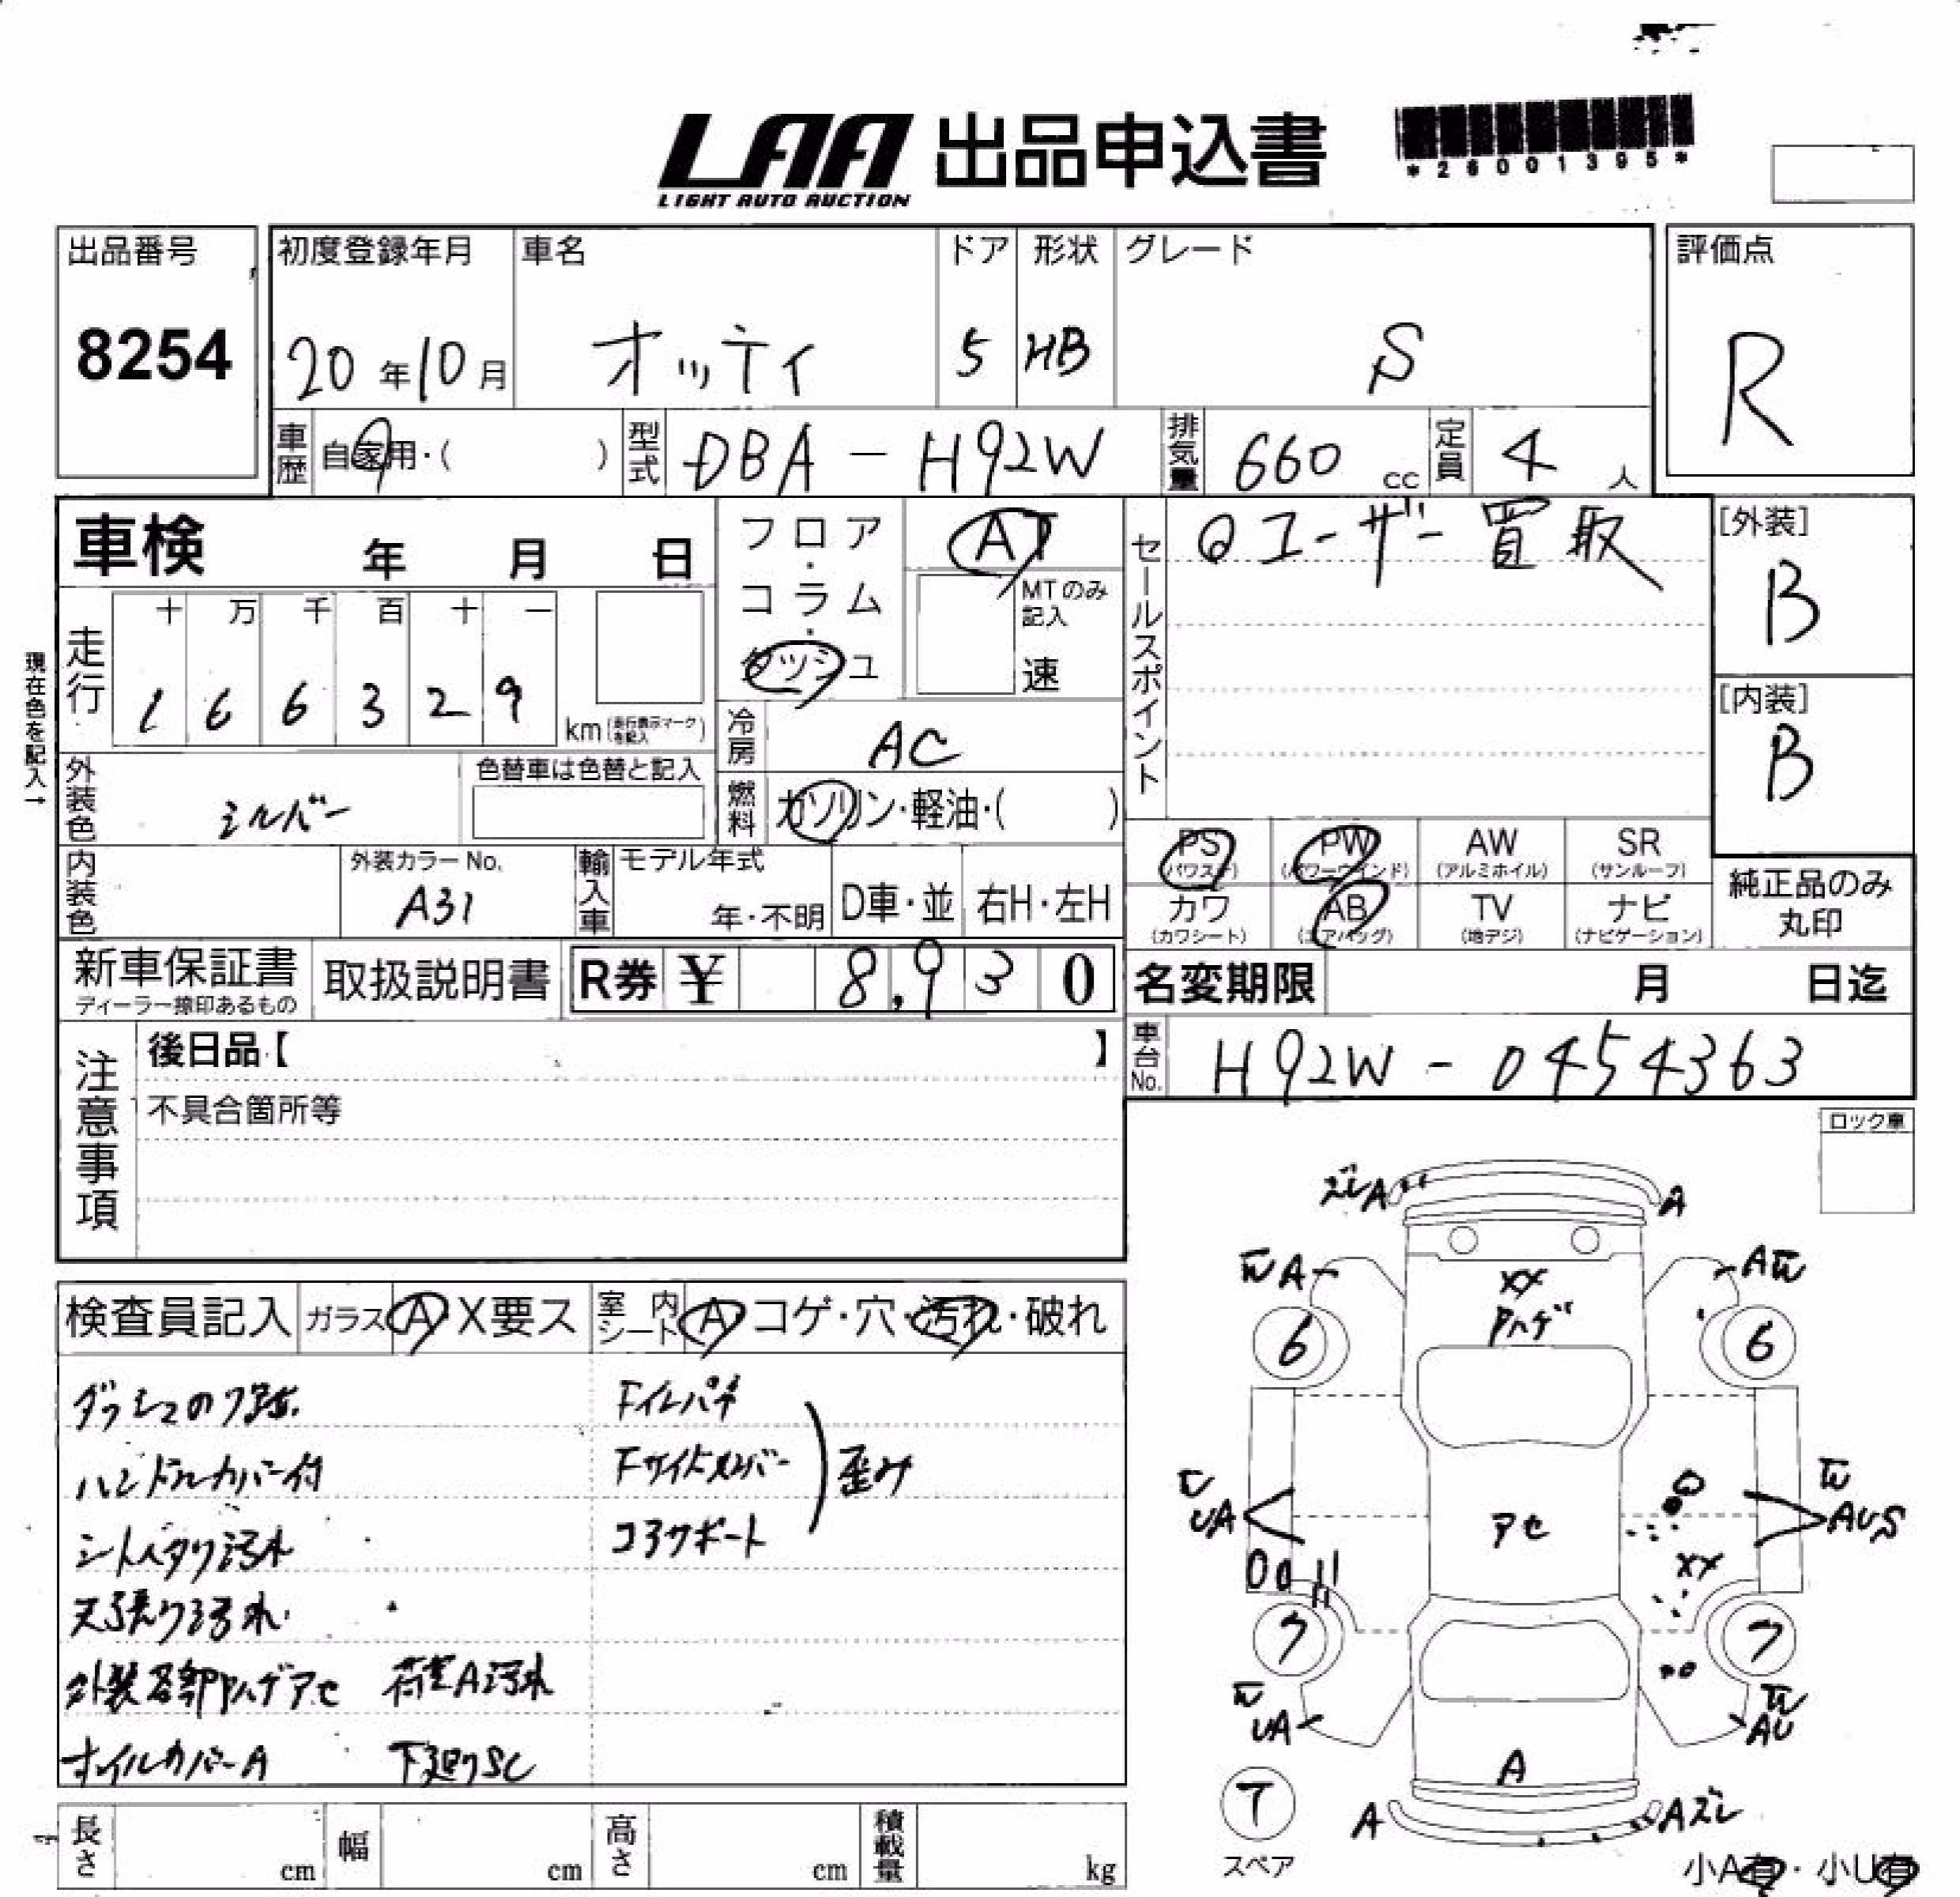 LAA 出品申込書
LIGHT AUTO AUCTION
*26001395*
出品番号
8254
初度登録年月
20年10月
車名
オッティ
ドア
5
形状
HB
グレード
S
評価点
R
車歴 自家用・( )
型式 DBA-H92W
排気量 660 cc
定員 4 人
車検 年 月 日
フロア・コラム・ダッシュ
AT
MTのみ記入
速
セールスポイント
ユーザー買取
[外装]
B
[内装]
B
現在色を記入→
走行
十 万 千 百 十 一
1 6 6 3 2 9
km(走行表示マークを記入)
冷房 AC
燃料 ガソリン・軽油・( )
外装色 シルバー
色替車は色替と記入
内装色
外装カラーNo.
A31
輸入車
モデル年式
年・不明
D車・並
右H・左H
PS (パワステ)
PW (パワーウインド)
AW (アルミホイル)
SR (サンルーフ)
カワ (カワシート)
AB (エアバッグ)
TV (地デジ)
ナビ (ナビゲーション)
純正品のみ丸印
新車保証書
ディーラー捺印あるもの
取扱説明書
R券 ¥ 8,930
名変期限 月 日迄
車台No. H92W-0454363
注意事項
後日品【 】
不具合箇所等
ロック車
検査員記入
ガラス A・X要ス
室内シート A・コゲ・穴・汚れ・破れ
ハンドルカバー付
天張り汚れ
外装各部Pハゲアセ 荷室A汚れ
オイルカバーA 下廻りSC
Fインパネ
Fサイドメンバー
コアサポート
歪み
ズレA
A
A
A
XX
Pハゲ
6
6
UA
アセ
AUS
XX
7
7
UA
AU
A
A
Aズレ
T
スペア
小A有・小U有
長さ cm
幅 cm
高さ cm
積載量 kg